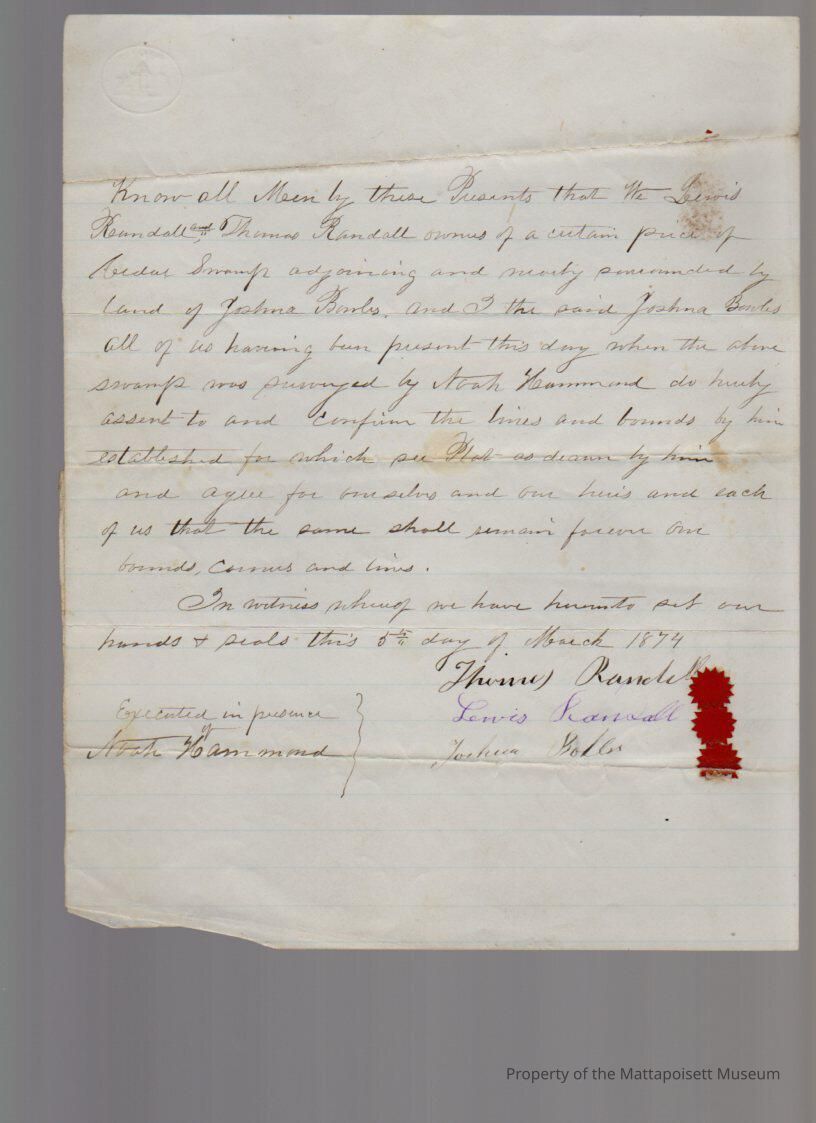 Know all Men by these Presents that We Lewis
Randall and Thomas Randall owners of a certain piece of
Cedar Swamp adjoining and nearly surrounded by
land of Joshua Bowles. and I the said Joshua Bowles
all of us having been present this day when the above
swamp was surveyed by Noah Hammond do hereby
assent to and confirm the lines and bounds by him
established for which see Plat as drawn by him
and agree for ourselves and our heirs and each
of us that the same shall remain forever our
bounds, corners and lines.
In witness whereof we have hereunto set our
hands & seals this 5th day of March 1874
Thomas Randall
Executed in presence Lewis Randall
of
Noah Hammond Joshua Bolles
Property of the Mattapoisett Museum